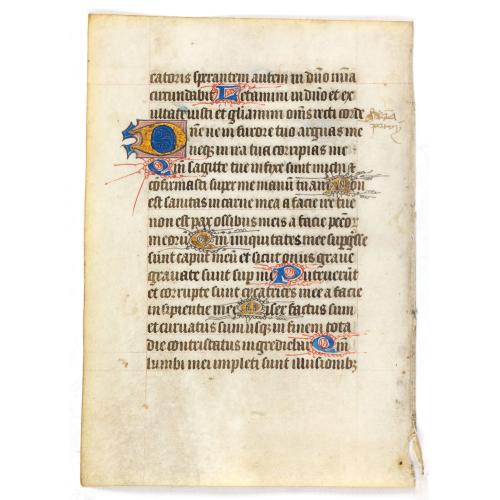 catoris sperantem autem in dño mia
circundabit Letamini in dño et ex
ultate iusti et gliamini oms recti corde
Dñe ne in furore tuo arguas me
neqz in ira tua corripias me
Qm sagitte tue infixe sunt michi et
cōfirmasti supr me manū tuam Non
est sanitas in carne mea a facie ire tue
non est pax ossibus meis a facie peccōr
meorū Qm iniquitates mee supgresse
sunt caput meū et sicut onus graue
grauate sunt sup me Putruerūt
et corrupte sunt cicatrices mee a facie
insipientie mee Miser factus sum
et curuatus sum usqz in finem tota
die contristatus ingrediebar Qm
lumbi mei impleti sunt illusionibz